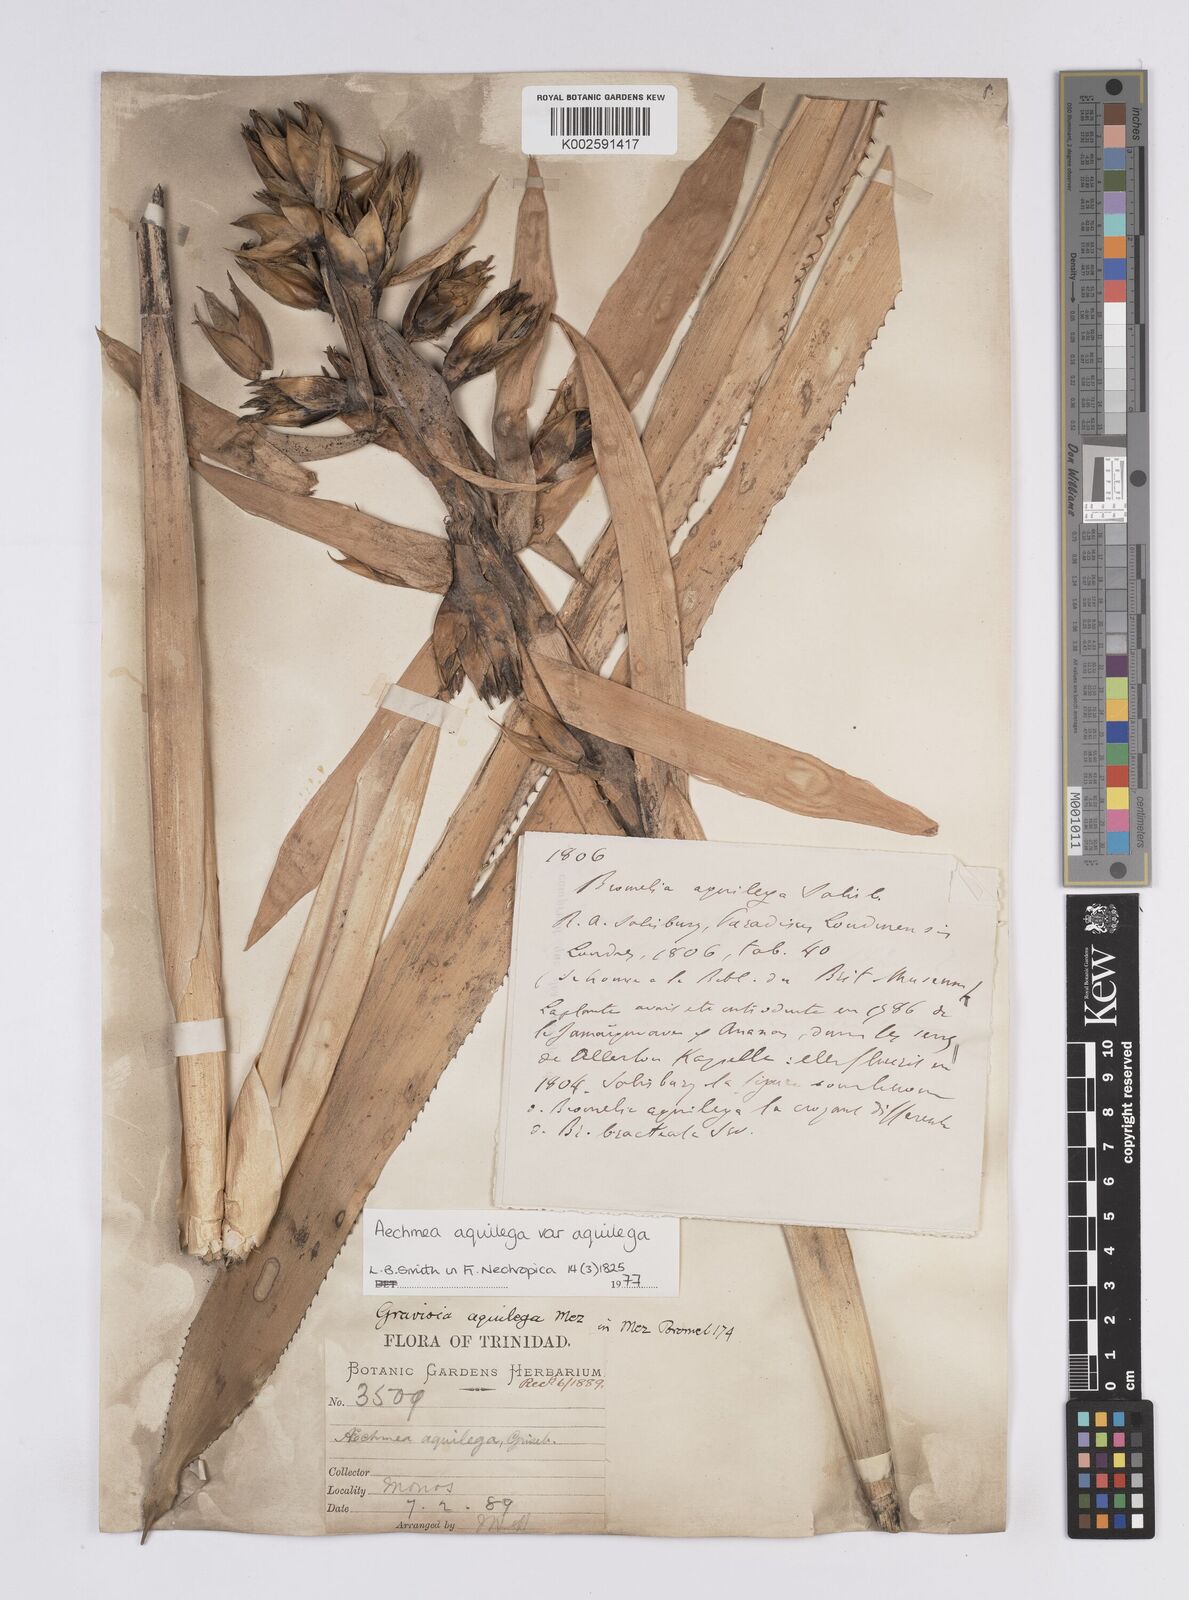 ROYAL BOTANIC GARDENS KEW
K002591417
1806
Bromelia aquilega Salisb.
R. A. Salisbury, Paradisus Londinensis
Londres, 1806, tab. 40
(Se trouve a la Bibl. du Brit. Museum)
La plante avait ete introduite en 1786 de
la Jamaique avec des Ananas, dans les serres
de Ellerton : elle fleurit en
1804. Salisbury la figure sous le nom
de Bromelia aquilega la croyant differente
de Br. bracteata Sw.
Aechmea aquilega var aquilega
L.B. Smith in Fl. Neotropica 14(3)1825
DET 1977
Gravisia aquilega Mez in Mez Bromel 174
FLORA OF TRINIDAD.
BOTANIC GARDENS HERBARIUM
Recd 6/1889.
No. 3509
Aechmea aquilega, Griseb.
Collector
Locality Monos
Date 7. 2. 89
Arranged by
inches
centimetres
Density
Don Williams
M001011
Royal Botanic Gardens
Kew
0 1 2 3 4 5 6 7 8 9 10 cm
copyright reserved